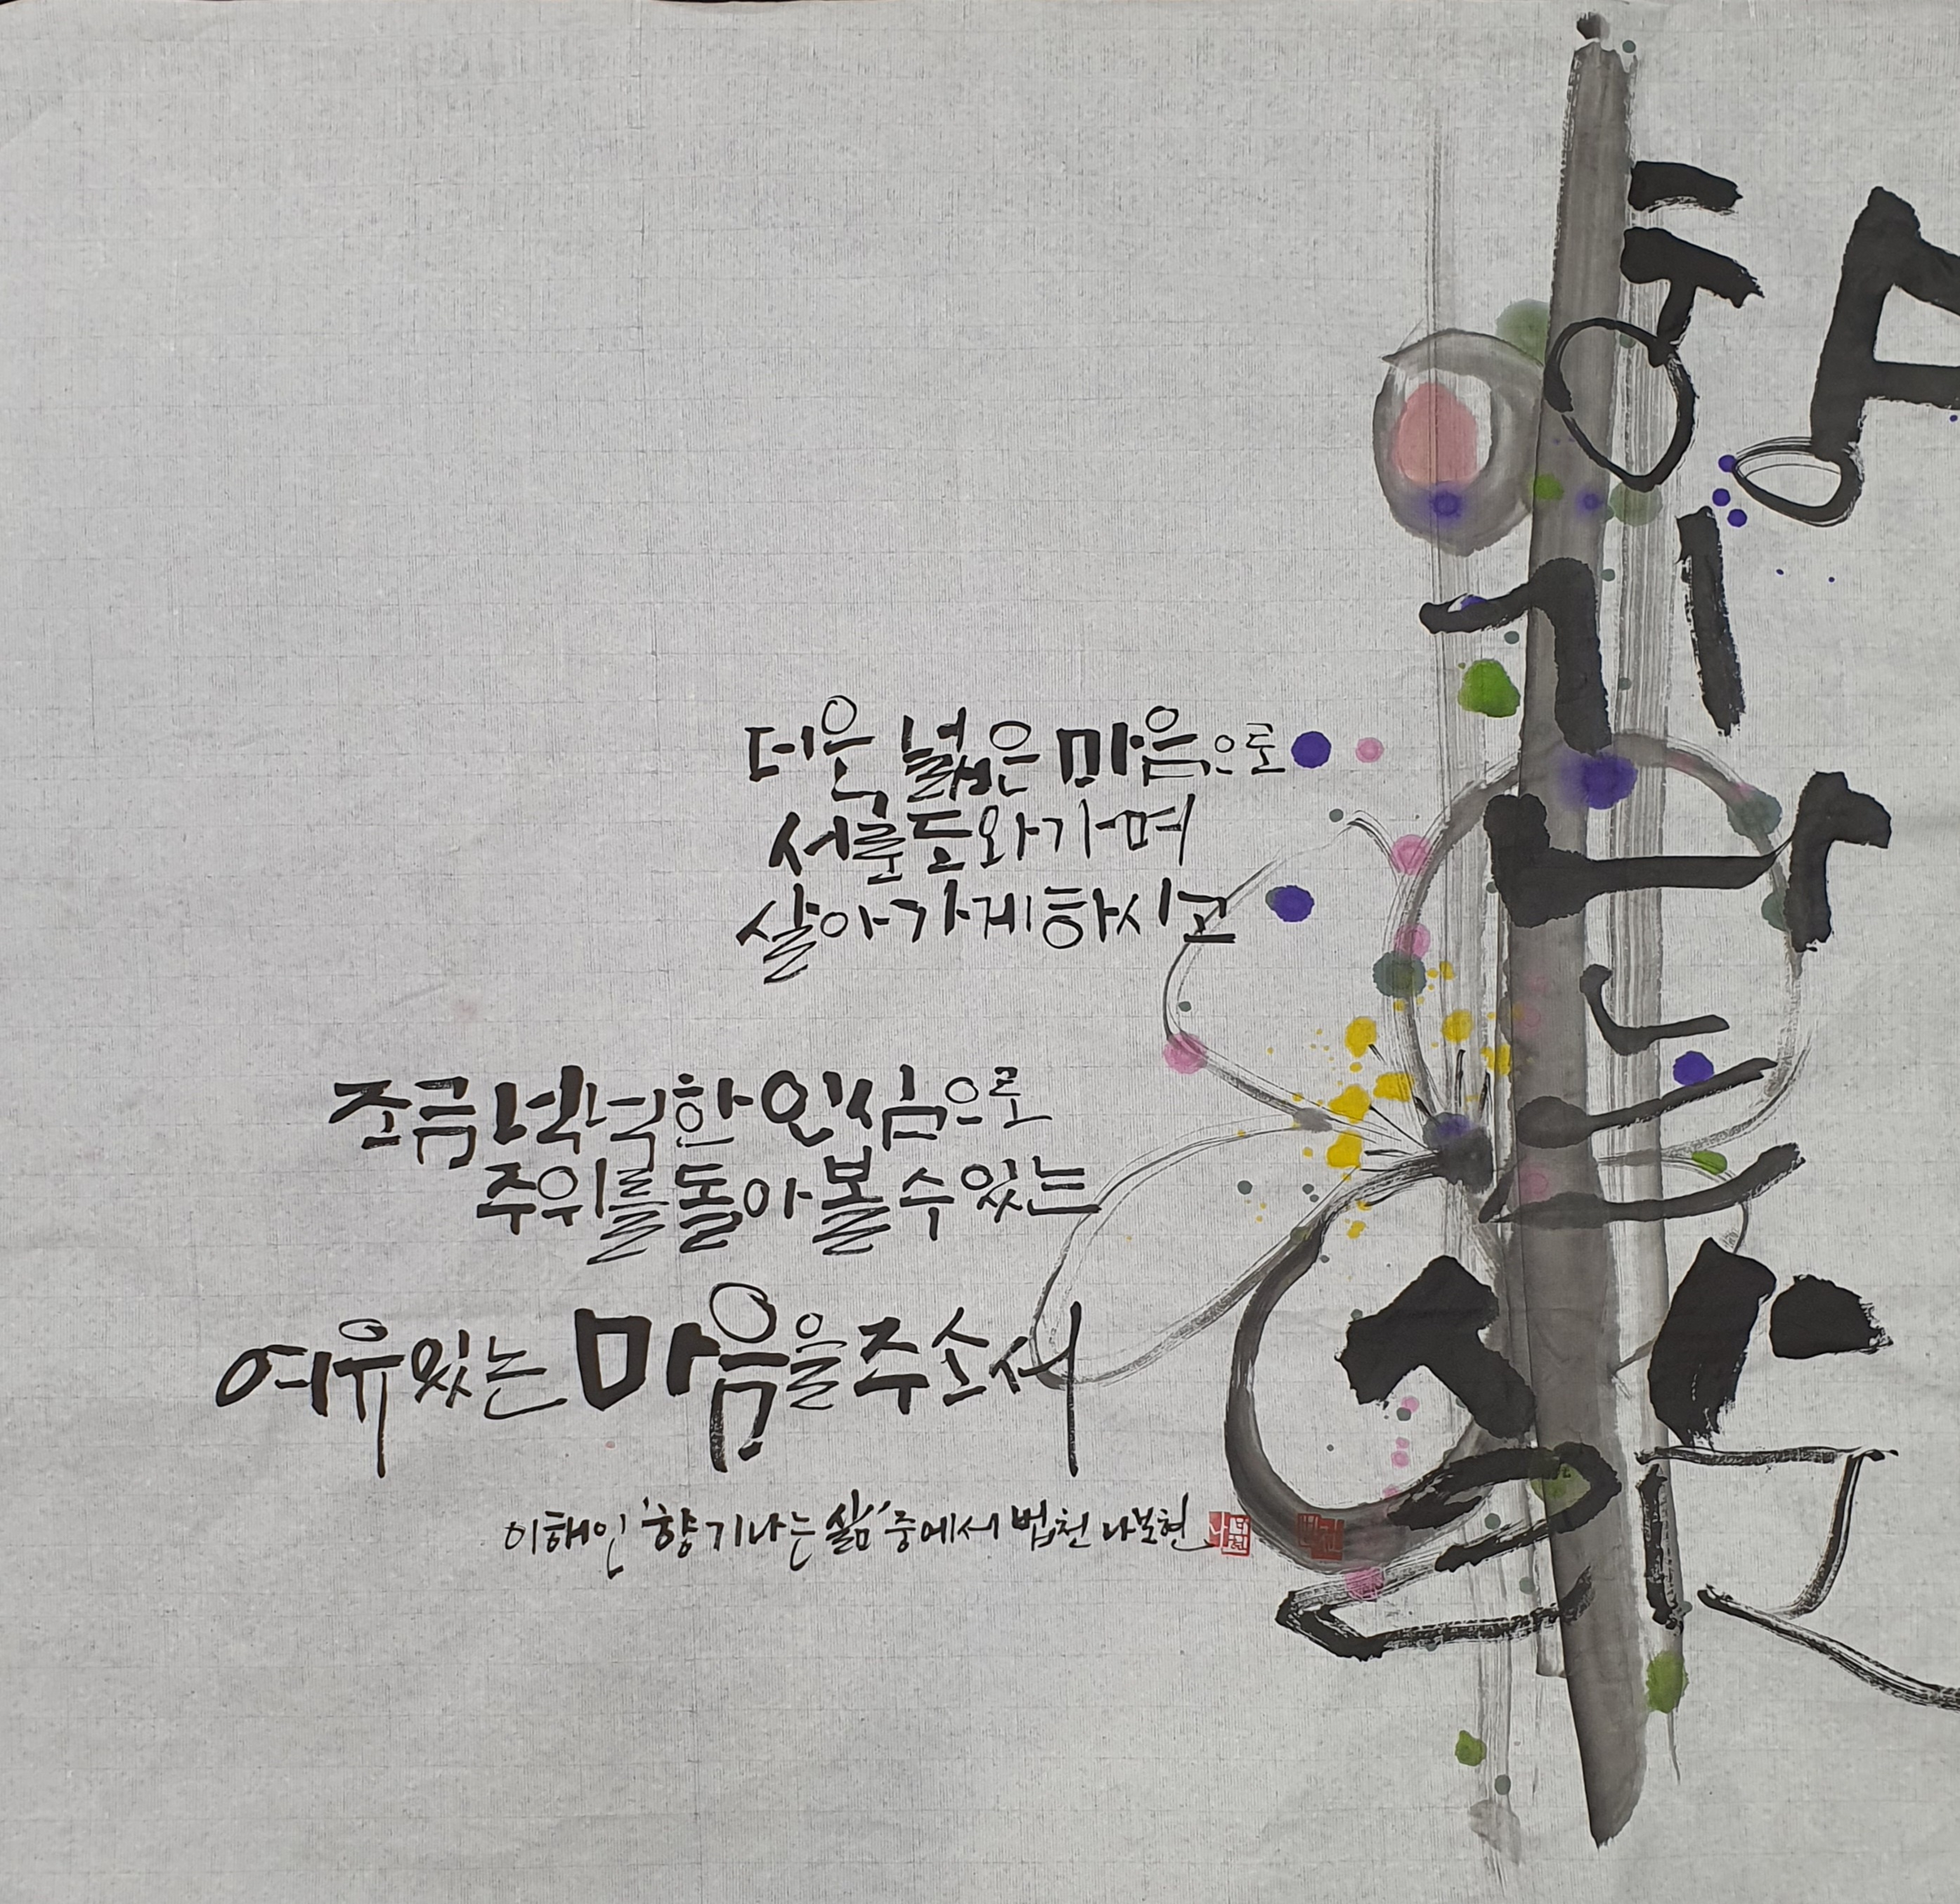 향기나는 삶
더욱 넓은 마음으로
서로를 도와가며
살아가게 하시고
조금 넉넉한 인심으로
주위를 돌아볼 수 있는
여유있는 마음을 주소서
이해인 '향기나는 삶" 중에서 법천 나보현